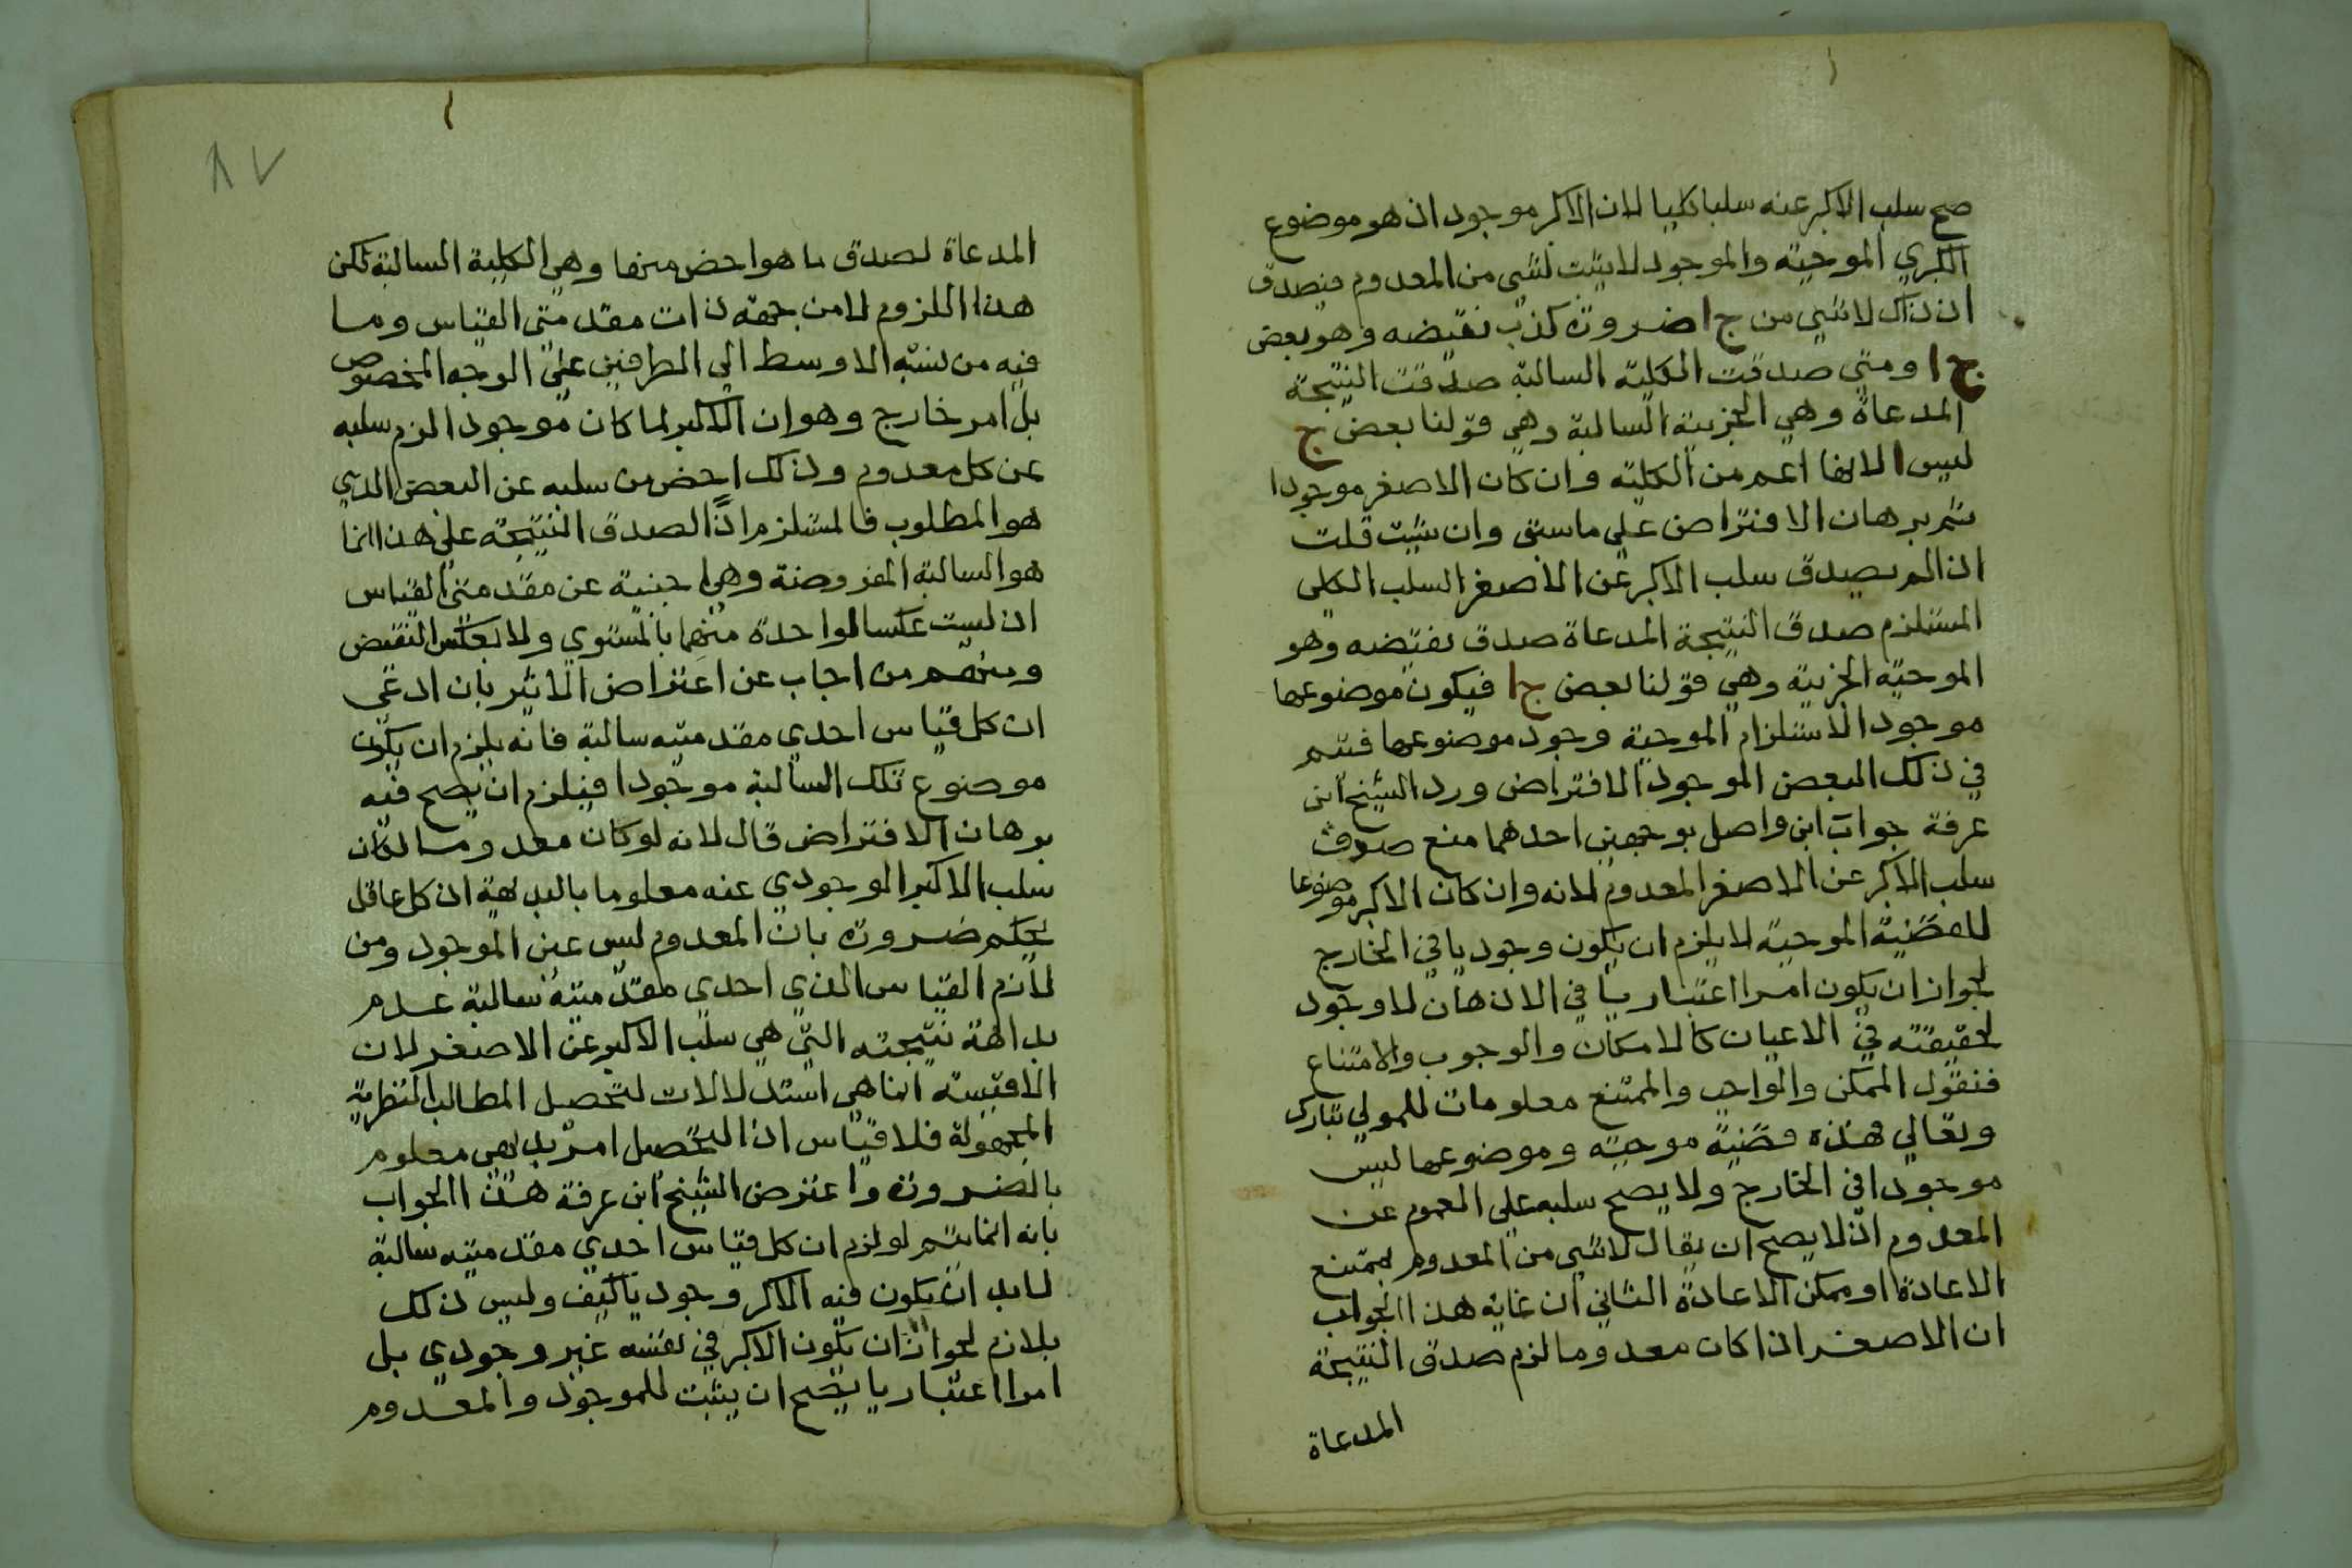 صح سلب الاكبر عنه سلبا كليا لان الاكبر موجود اذ هو موضوع
الكبري الموجبة والموجود لا يثبت لشي من المعدوم فيصدق
اذ ذاك لا شي من ج ا ضرورة كذب نقيضه وهو بعض
ج ا ومتي صدقت الكلية السالبة صدقت النتيجة
المدعاة وهي الجزيية السالبة وهي قولنا بعض ج
ليس ا لانها اعم من الكلية وان كان الاصغر موجودا
تم برهان الافتراض علي ما سبق وان شيت قلت
اذا لم يصدق سلب الاكبر عن الاصغر السلب الكلي
المستلزم صدق النتيجة المدعاة صدق نقيضه وهو
الموجبة الجزيية وهي قولنا بعض ج ا فيكون موضوعها
موجودا لاستلزام الموجبة وجود موضوعها فيتم
في ذلك البعض الموجود الافتراض ورد الشيخ ابن
عرفة جواب ابن واصل بوجهين احدهما منع صدق
سلب الاكبر عن الاصغر المعدوم لانه وان كان الاكبر موضوعا
للقضية الموجبة لا يلزم ان يكون وجوديا في الخارج
لجواز ان يكون امرا اعتباريا في الاذهان لا وجود
لحقيقته في الاعيان كالامكان والوجوب والامتناع
فنقول الممكن والواجب والممتنع معلومات للمولي تبارك
وتعالي فهذه قضية موجبة وموضوعها ليس
موجودا في الخارج ولا يصح سلبه علي العموم عن
المعدوم اذ لا يصح ان يقال لا شي من المعدوم بممتنع
الاعادة او ممكن الاعادة الثاني ان غاية هذا الجواب
ان الاصغر اذا كان معدوما لزم صدق النتيجة
المدعاة
٨٧
المدعاة لصدق ما هو اخص منها وهي الكلية السالبة لكن
هذا اللزوم لا من جهة ذات مقدمتي القياس وما
فيه من نسبة الاوسط الي الطرفين علي الوجه المخصوص
بل امر خارج وهو ان الاكبر لما كان موجودا لزم سلبه
عن كل معدوم وذلك اخص من سلبه عن البعض الذي
هو المطلوب فالمستلزم اذًا لصدق النتيجة علي هذا انما
هو السالبة المفروضة وهي اجنبية عن مقدمتي القياس
اذ ليست عكسا لواحدة منهما بالمستوي ولا بعكس النقيض
ومنهم من اجاب عن اعتراض الاثير بان ادعي
ان كل قياس احدي مقدمتيه سالبة فانه يلزم ان يكون
موضوع تلك السالبة موجودا فيلزم ان يصح فيه
برهان الافتراض قال لانه لو كان معدوما لكان
سلب الاكبر الوجودي عنه معلوما بالبديهة اذ كل عاقل
يحكم ضرورة بان المعدوم ليس عين الموجود ومن
لازم القياس الذي احدي مقدمتيه سالبة عدم
بداهة نتيجته التي هي سلب الاكبر عن الاصغر لان
الاقيسة انما هي استدلالات لتحصيل المطالب النظرية
المجهولة فلا قياس اذا لتحصيل امر بديهي معلوم
بالضرورة واعترض الشيخ ابن عرفة هذا الجواب
بانه انما يتم لو لزم ان كل قياس احدي مقدمتيه سالبة
لا بد ان يكون فيه الاكبر وجوديا كيف وليس ذلك
بلازم لجواز ان يكون الاكبر في نفسه غير وجودي بل
امرا اعتباريا يصح ان يثبت للموجود والمعدوم